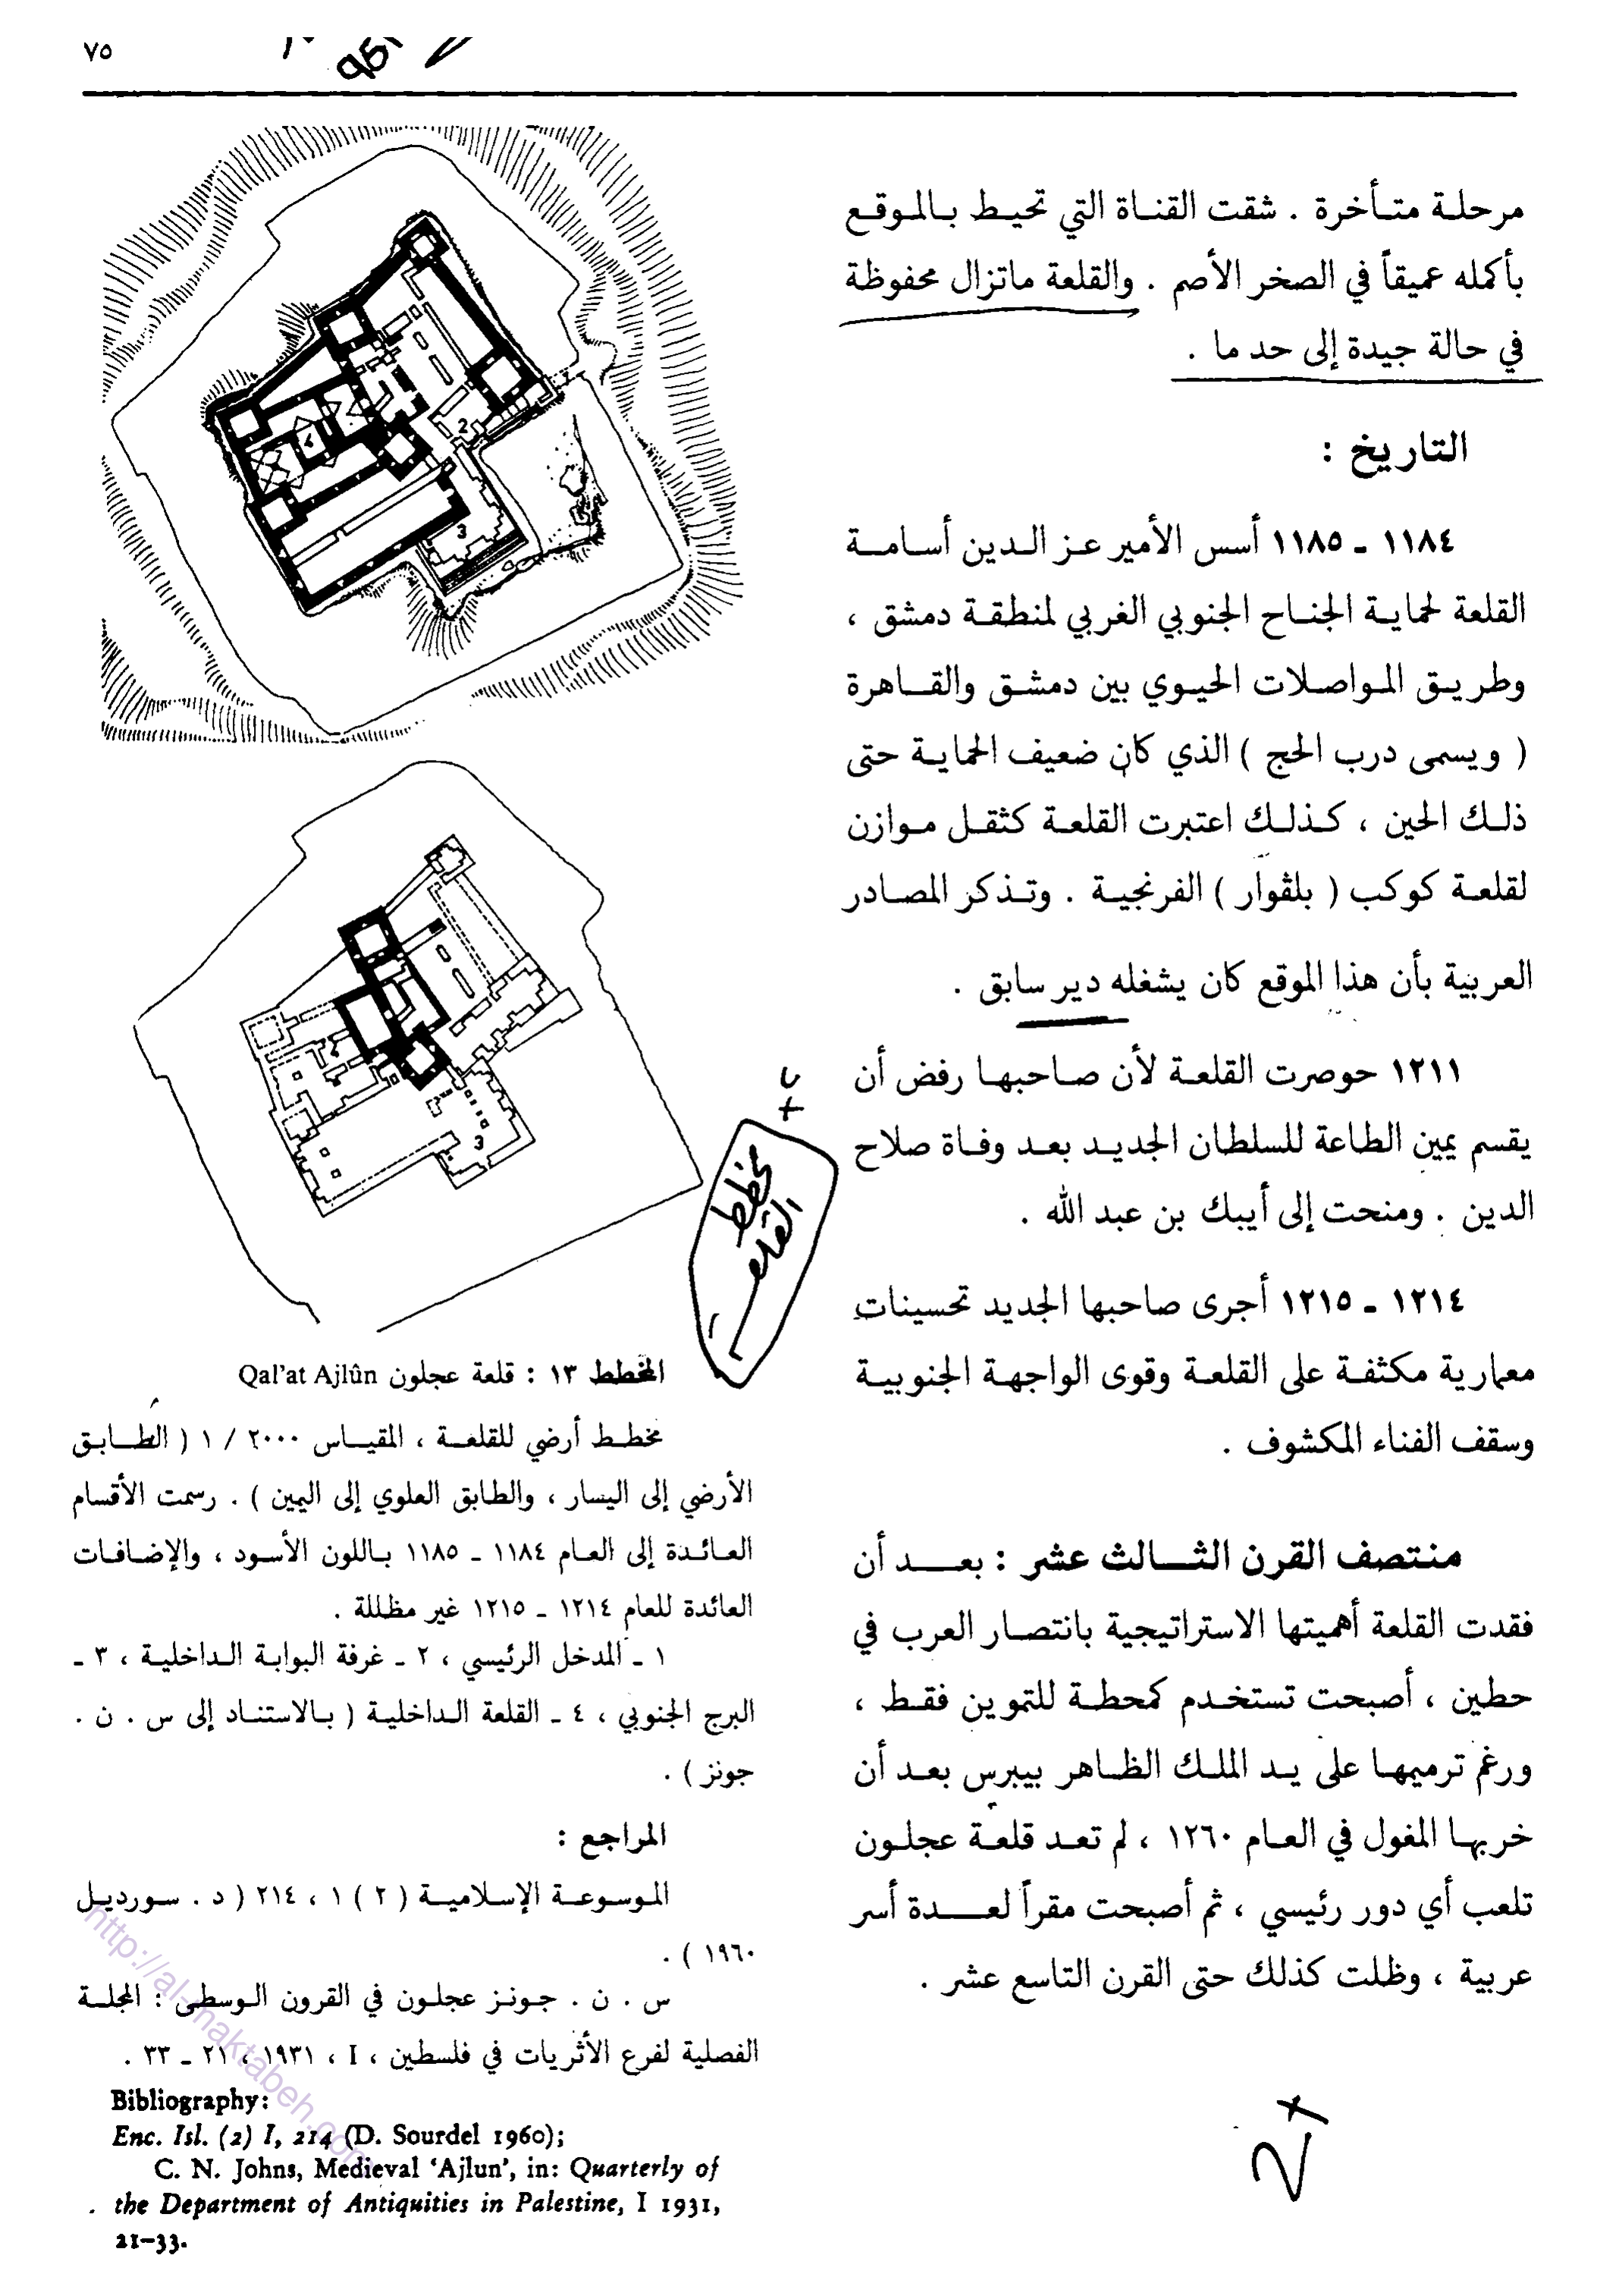 ٧٥
مرحلة متأخرة . شقت القناة التي تحيط بالموقع
بأكمله عميقاً في الصخر الأصم . والقلعة ماتزال محفوظة
في حالة جيدة إلى حد ما .
التاريخ :
١١٨٤ ـ ١١٨٥ أسس الأمير عز الدين أسامة
القلعة لحماية الجناح الجنوبي الغربي لمنطقة دمشق ،
وطريق المواصلات الحيوي بين دمشق والقاهرة
( ويسمى درب الحج ) الذي كان ضعيف الحماية حتى
ذلك الحين ، كذلك اعتبرت القلعة كثقل موازن
لقلعة كوكب ( بلڤوار ) الفرنجية . وتذكر المصادر
العربية بأن هذا الموقع كان يشغله دير سابق .
١٢١١ حوصرت القلعة لأن صاحبها رفض أن
يقسم يمين الطاعة للسلطان الجديد بعد وفاة صلاح
الدين . ومنحت إلى أيبك بن عبد الله .
١٢١٤ ـ ١٢١٥ أجرى صاحبها الجديد تحسينات
معمارية مكثفة على القلعة وقوى الواجهة الجنوبية
وسقف الفناء المكشوف .
منتصف القرن الثالث عشر : بعد أن
فقدت القلعة أهميتها الاستراتيجية بانتصار العرب في
حطين ، أصبحت تستخدم كمحطة للتموين فقط ،
ورغم ترميمها على يد الملك الظاهر بيبرس بعد أن
خربها المغول في العام ١٢٦٠ ، لم تعد قلعة عجلون
تلعب أي دور رئيسي ، ثم أصبحت مقراً لعدة أسر
عربية ، وظلت كذلك حتى القرن التاسع عشر .
2
3
3
مخطط
القلعة
المخطط ١٣ : قلعة عجلون Qal'at Ajlûn
مخطط أرضي للقلعة ، المقياس ٢٠٠٠ / ١ ( الطابق
الأرضي إلى اليسار ، والطابق العلوي إلى اليمين ) . رسمت الأقسام
العائدة إلى العام ١١٨٤ ـ ١١٨٥ باللون الأسود ، والإضافات
العائدة للعام ١٢١٤ ـ ١٢١٥ غير مظللة .
١ ـ المدخل الرئيسي ، ٢ ـ غرفة البوابة الداخلية ، ٣ ـ
البرج الجنوبي ، ٤ ـ القلعة الداخلية ( بالاستناد إلى س . ن .
جونز ) .
المراجع :
الموسوعة الإسلامية ( ٢ ) ١ ، ٢١٤ ( د . سورديل
١٩٦٠ ) .
س . ن . جونز عجلون في القرون الوسطى : المجلة
الفصلية لفرع الأثريات في فلسطين ، I ، ١٩٣١ ، ٢١ ـ ٣٣ .
Bibliography:
Enc. Isl. (2) I, 214 (D. Sourdel 1960);
C. N. Johns, Medieval 'Ajlun', in: Quarterly of
the Department of Antiquities in Palestine, I 1931,
21–33.
http://al-maktabeh.com